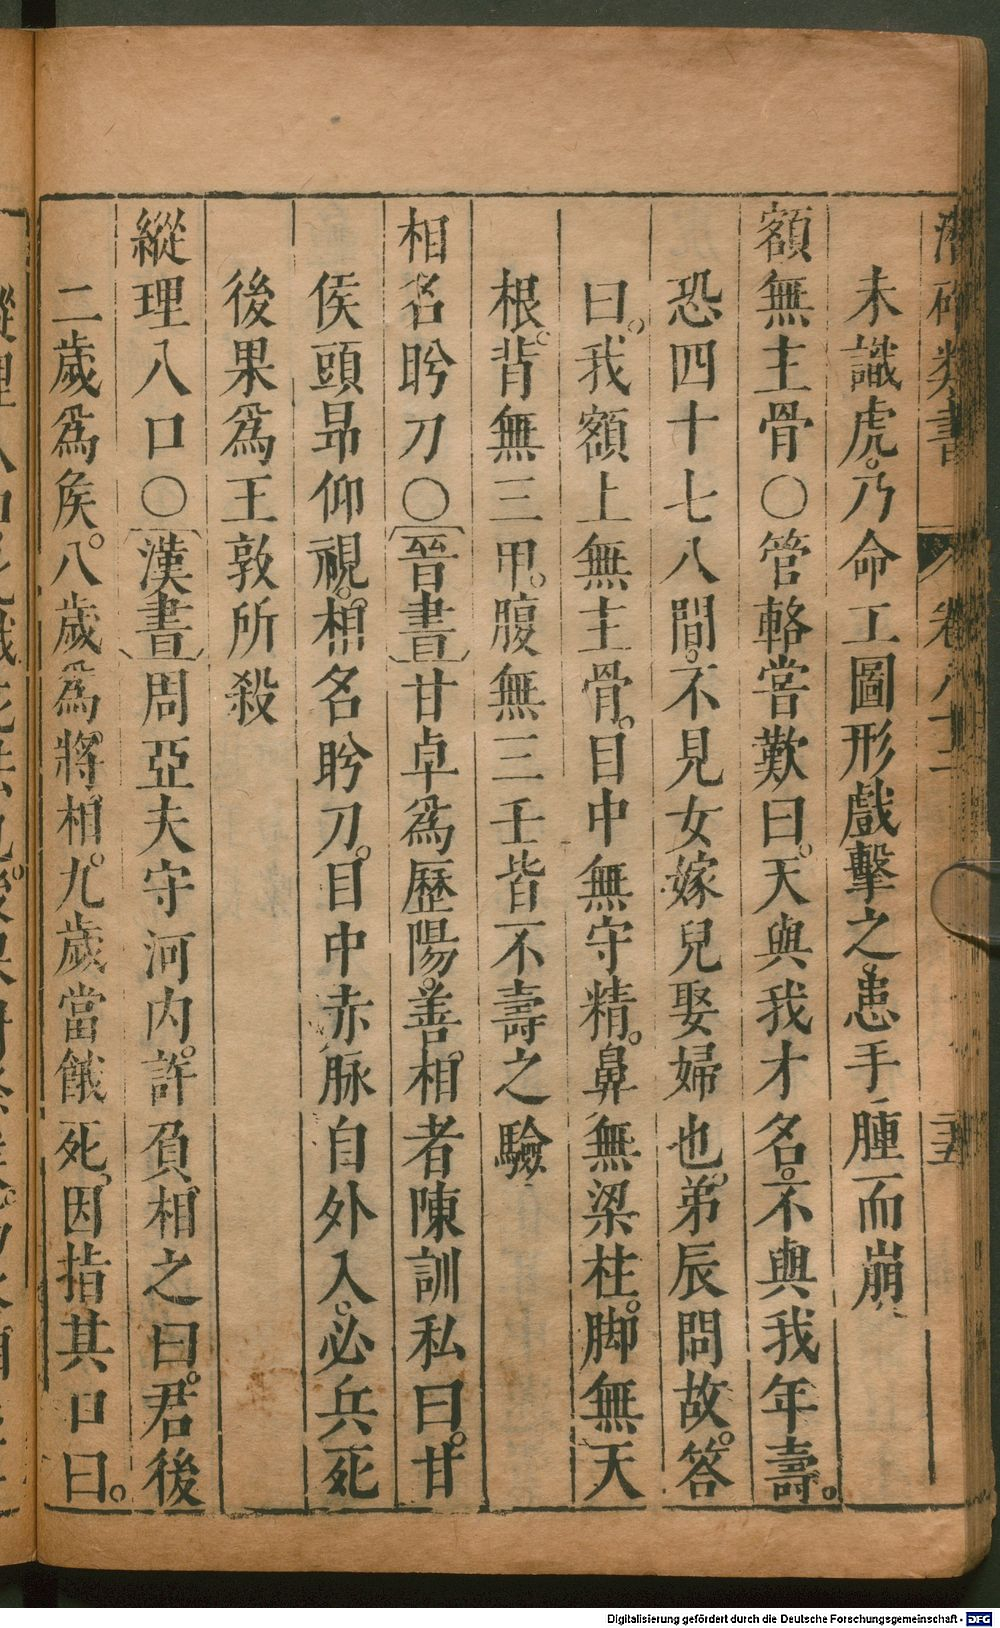 潛確類書 卷八十二 二十五
未識虎。乃命工圖形戲擊之。患手腫而崩
額無主骨〇管輅嘗歎曰。天與我才名。不與我年壽。
恐四十七八間。不見女嫁兒娶婦也。弟辰問故。答
曰。我額上無主骨。目中無守精。鼻無梁柱。脚無天
根。背無三甲。腹無三壬皆不壽之驗
相名盻刀〇[晉書]甘卓爲歷陽。善相者陳訓私曰。甘
侯頭昂仰視。相名盻刀。目中赤脉自外入。必兵死
後果爲王敦所殺
縱理入口〇[漢書]周亞夫守河內。許負相之曰。君後
二歲爲矦。八歲爲將相。九歲當餓死。因指其口曰。
Digitalisierung gefördert durch die Deutsche Forschungsgemeinschaft - DFG